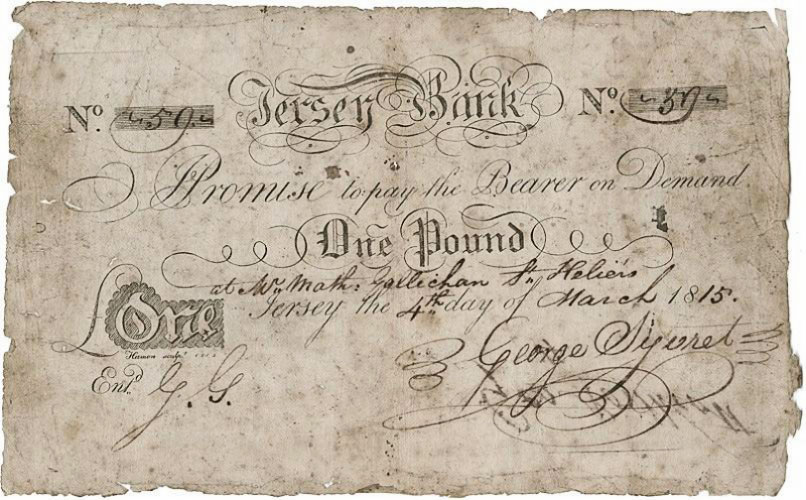 No. 59 Jersey Bank No. 59
I Promise to pay the Bearer on Demand
One Pound
at Mr. Math: Gallichan St. Heliers
£One Jersey the 4th day of March 1815.
Hamon sculpt.
George Syvret
Entd. G. G.